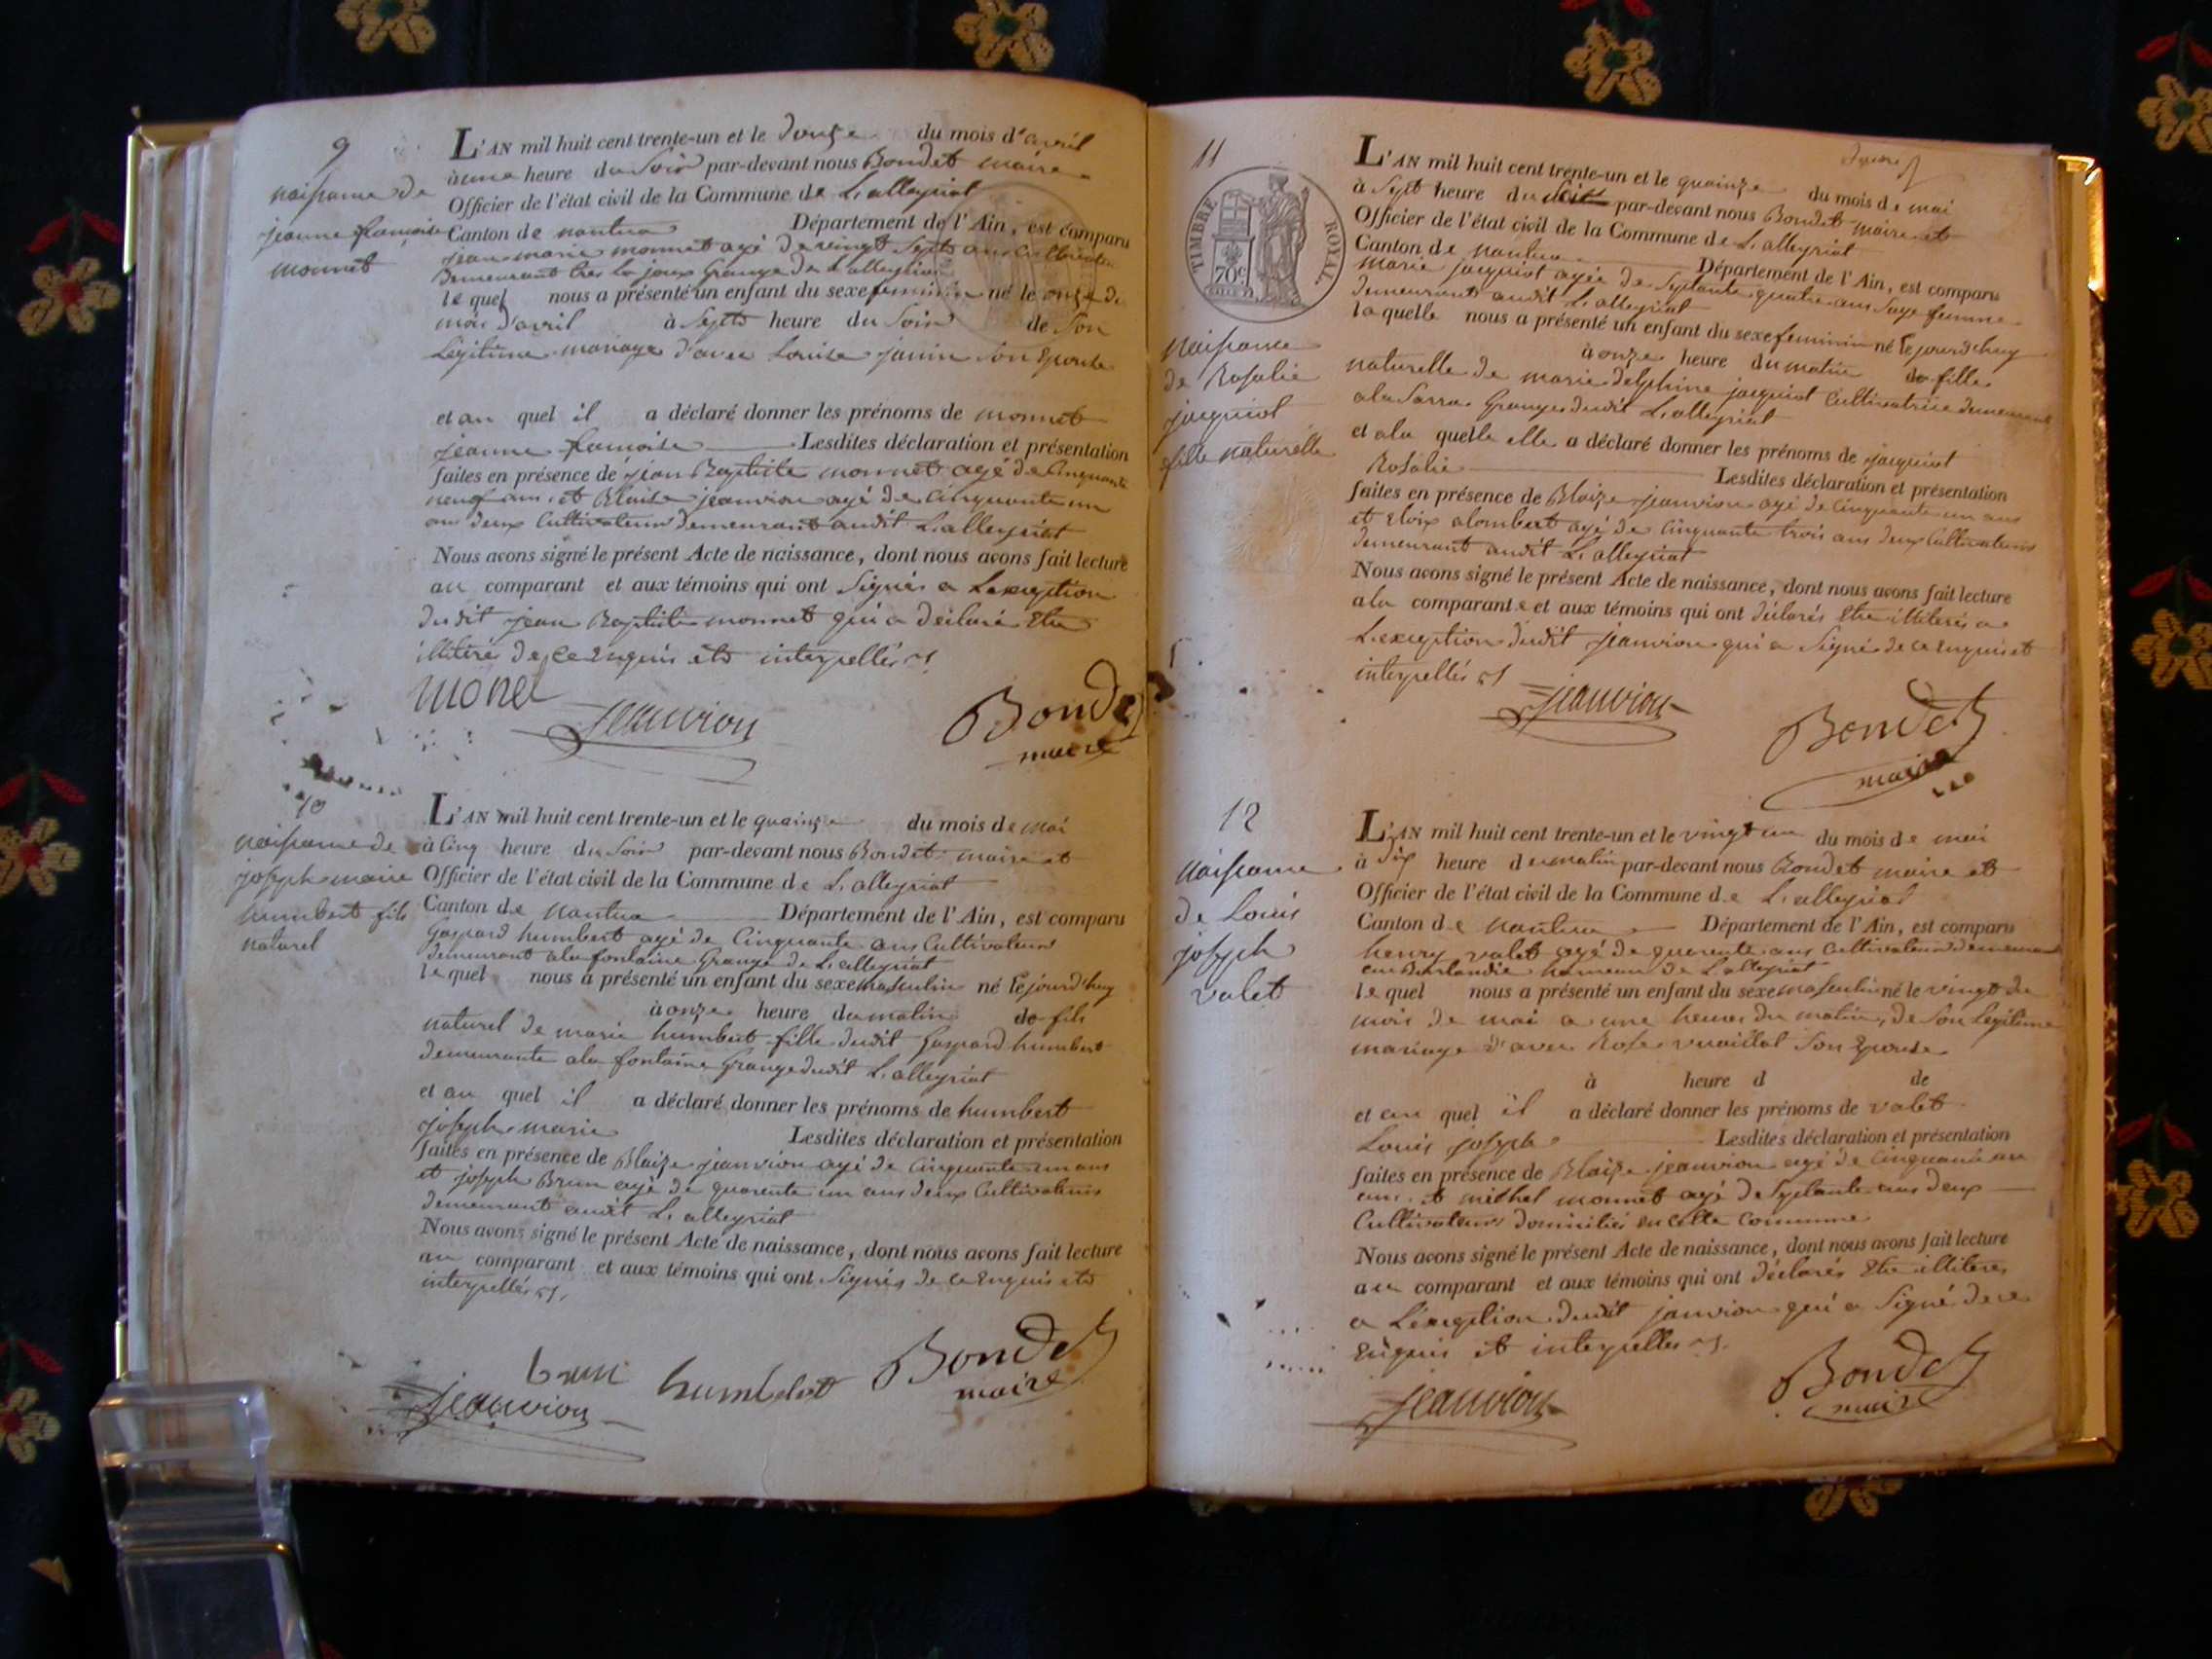 9
naissance de
jeanne françoise
monnet
L'AN mil huit cent trente-un et le douze du mois d'avril
à une heure du soir par-devant nous Bondet maire
Officier de l'état civil de la Commune de L'alleyriat
Canton de nantua Département de l'Ain, est comparu
jean marie monnet agé de vingt sept ans cultivateur
demeurant
le quel nous a présenté un enfant du sexe feminin né le onze du
mois d'avril à sept heure du soir de son
légitime mariage d'avec Louise janin son Epouse
et au quel il a déclaré donner les prénoms de monnet
jeanne francoise Lesdites déclaration et présentation
faites en présence de jean Baptiste monnet agé de cinquante
neuf ans et Blaise jeanvion agé de cinquante un
ans deux cultivateurs demeurant audit L'alleyriat
Nous avons signé le présent Acte de naissance, dont nous avons fait lecture
au comparant et aux témoins qui ont signés a L'exception
dudit jean Baptiste monnet qui a déclaré Etre
illitéré de ce Enquis et interpellés
monet
jeanvion
Bondet
maire
10
naissance de
joseph marie
humbert fils
naturel
L'AN mil huit cent trente-un et le quainze du mois de mai
à cinq heure du soir par-devant nous Bondet maire et
Officier de l'état civil de la Commune de L'alleyriat
Canton de nantua Département de l'Ain, est comparu
Gaspard humbert agé de cinquante ans cultivateur
demeurant a la fontaine Grange de L'alleyriat
le quel nous a présenté un enfant du sexe masculin né le jourd'huy
à onze heure du matin de fils
naturel de marie humbert fille dudit Gaspard humbert
demeurante a la fontaine Grange dudit L'alleyriat
et au quel il a déclaré donner les prénoms de humbert
joseph marie Lesdites déclaration et présentation
faites en présence de Blaize jeanvion agé de cinquante un ans
et joseph Brun agé de quarente un ans deux cultivateurs
demeurant audit L'alleyriat
Nous avons signé le présent Acte de naissance, dont nous avons fait lecture
au comparant et aux témoins qui ont signés de ce Enquis et
interpellés
brun
jeanvion
humbert
Bondet
maire
11
TIMBRE ROYAL
70c
naissance
de Rosalie
jacquiot
fille naturelle
L'AN mil huit cent trente-un et le quainze du mois de mai
à sept heure du soir par-devant nous Bondet maire et
Officier de l'état civil de la Commune de L'alleyriat
Canton de nantua Département de l'Ain, est comparu
marie jacquiot agée de septante quatre ans sage femme
demeurant audit L'alleyriat
la quelle nous a présenté un enfant du sexe feminin né le jourd'huy
à onze heure du matin de fille
naturelle de marie delphine jacquiot cultivatrice demeurant
a la Grange dudit L'alleyriat
et a la quelle elle a déclaré donner les prénoms de jacquiot
Rosalie Lesdites déclaration et présentation
faites en présence de Blaize jeanvion agé de cinquante un ans
et Eloix alombert agé de cinquante trois ans deux cultivateurs
demeurant audit L'alleyriat
Nous avons signé le présent Acte de naissance, dont nous avons fait lecture
a la comparante et aux témoins qui ont déclarés Etre illiterés a
L'exception dudit jeanvion qui a signé de ce Enquis et
interpellés
jeanvion
Bondet
maire
12
naissance
de Louis
joseph
valet
L'AN mil huit cent trente-un et le vingt un du mois de mai
à six heure du matin par-devant nous Bondet maire et
Officier de l'état civil de la Commune de L'alleyriat
Canton de nantua Département de l'Ain, est comparu
henry valet agé de quarente ans cultivateur demeurant
en Burlandie hameau de L'alleyriat
le quel nous a présenté un enfant du sexe masculin né le vingt du
mois de mai a une heure du matin, de son légitime
mariage d'avec Rose vuaillat son Epouse
à heure d de
et au quel il a déclaré donner les prénoms de valet
Louis joseph Lesdites déclaration et présentation
faites en présence de Blaize jeanvion agé de cinquante un
ans et michel monnet agé de septante ans deux
Cultivateurs domiciliés en cette commune
Nous avons signé le présent Acte de naissance, dont nous avons fait lecture
au comparant et aux témoins qui ont déclarés Etre illiteres
a L'exception dudit janvion qui a signé de ce
Enquis et interpelles
jeanvion
Bondet
maire